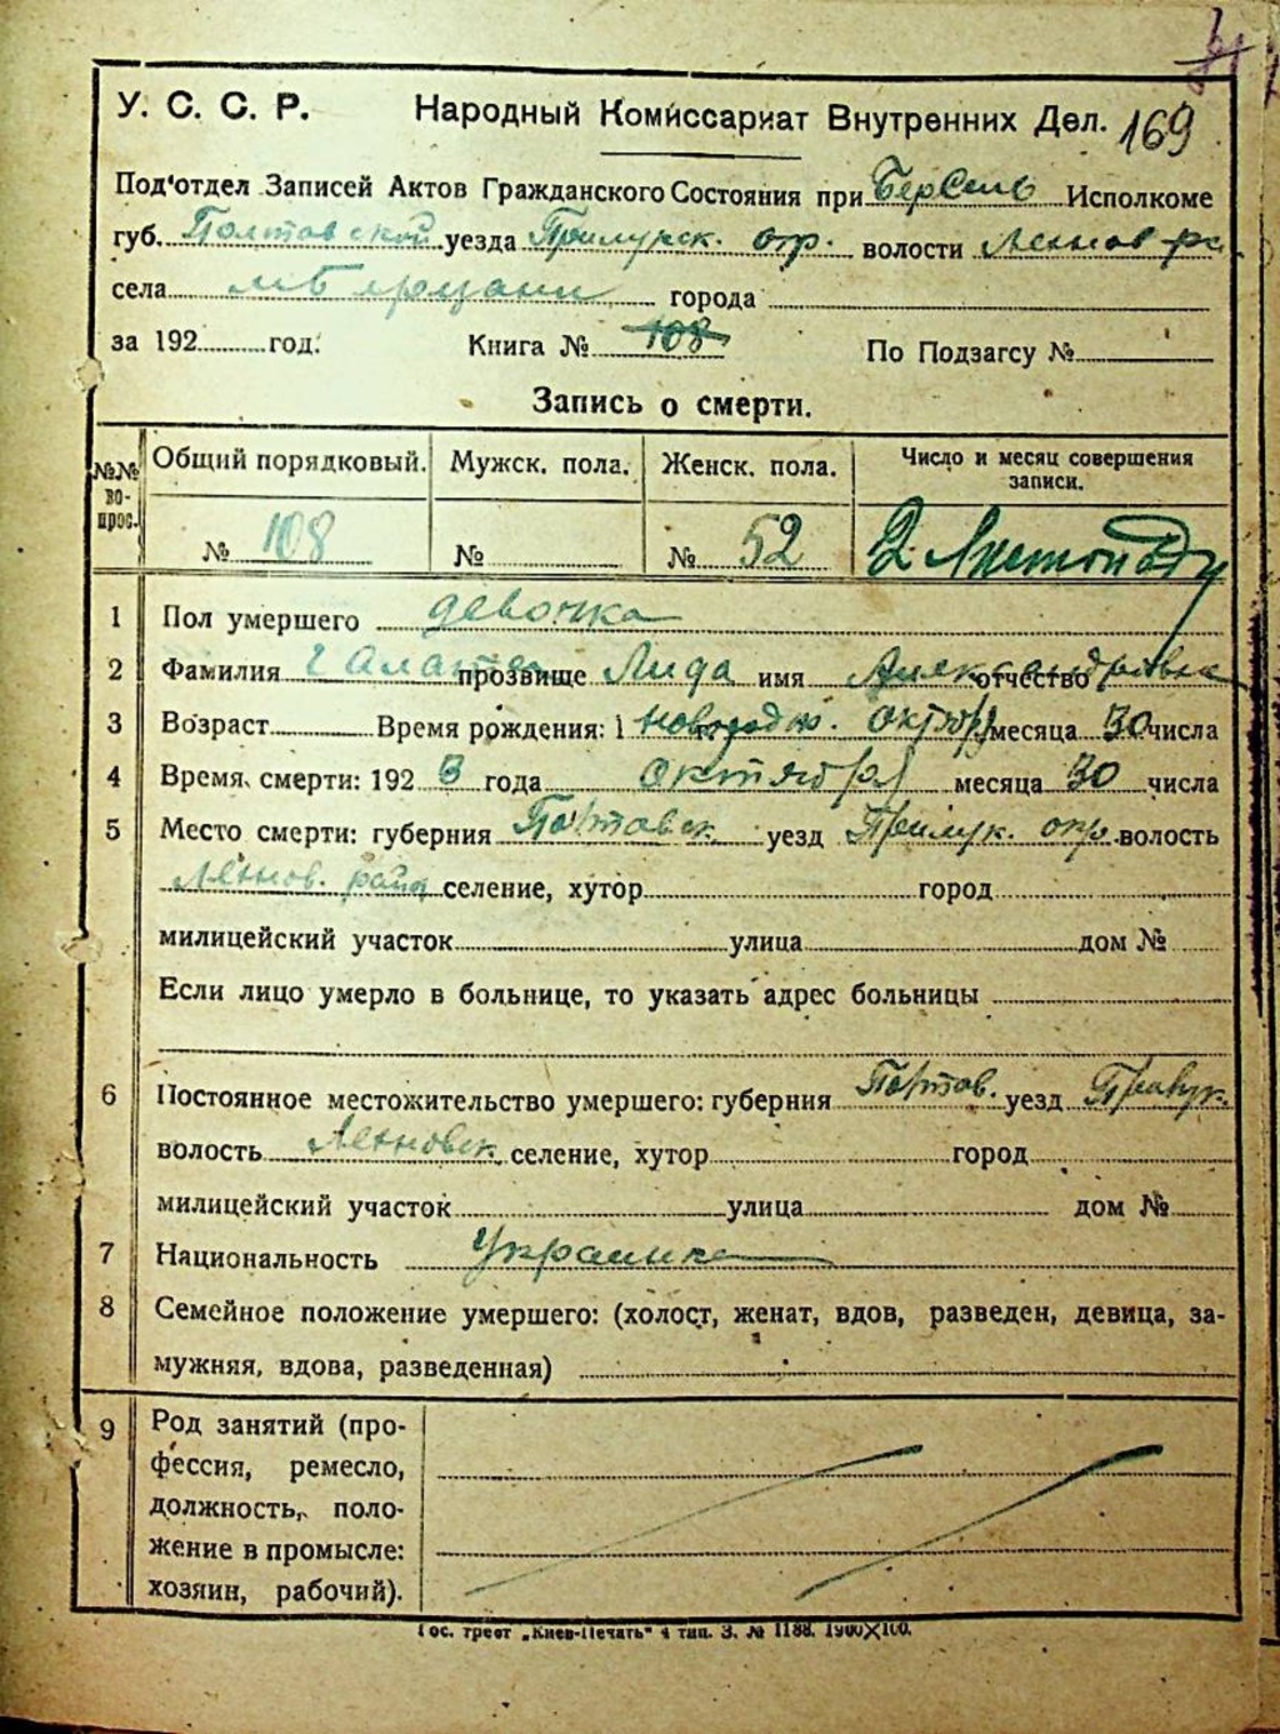 У. С. С. Р. Народный Комиссариат Внутренних Дел. 169
Под'отдел Записей Актов Гражданского Состояния при Исполкоме
губ. Полтавской уезда Прилукск. окр. волости
села города
за 192 год. Книга № 108 По Подзагсу №
Запись о смерти.
№№ вопрос. Общий порядковый. Мужск. пола. Женск. пола. Число и месяц совершения записи.
№ 108 № № 52 2 Листопаду
1 Пол умершего девочка
2 Фамилия прозвище Лида имя Александровна отчество
3 Возраст Время рождения: 1 октябр месяца 30 числа
4 Время смерти: 192 3 года октября месяца 30 числа
5 Место смерти: губерния Полтавск. уезд Прилук. окр. волость
район селение, хутор город
милицейский участок улица дом №
Если лицо умерло в больнице, то указать адрес больницы
6 Постоянное местожительство умершего: губерния Полтав. уезд Прилук.
волость селение, хутор город
милицейский участок улица дом №
7 Национальность Украинка
8 Семейное положение умершего: (холост, женат, вдов, разведен, девица, за-
мужняя, вдова, разведенная)
9 Род занятий (про-
фессия, ремесло,
должность, поло-
жение в промысле:
хозяин, рабочий).
Гос. трест „Киев-Печать" 4 тип. З. № 1188. 1900×100.